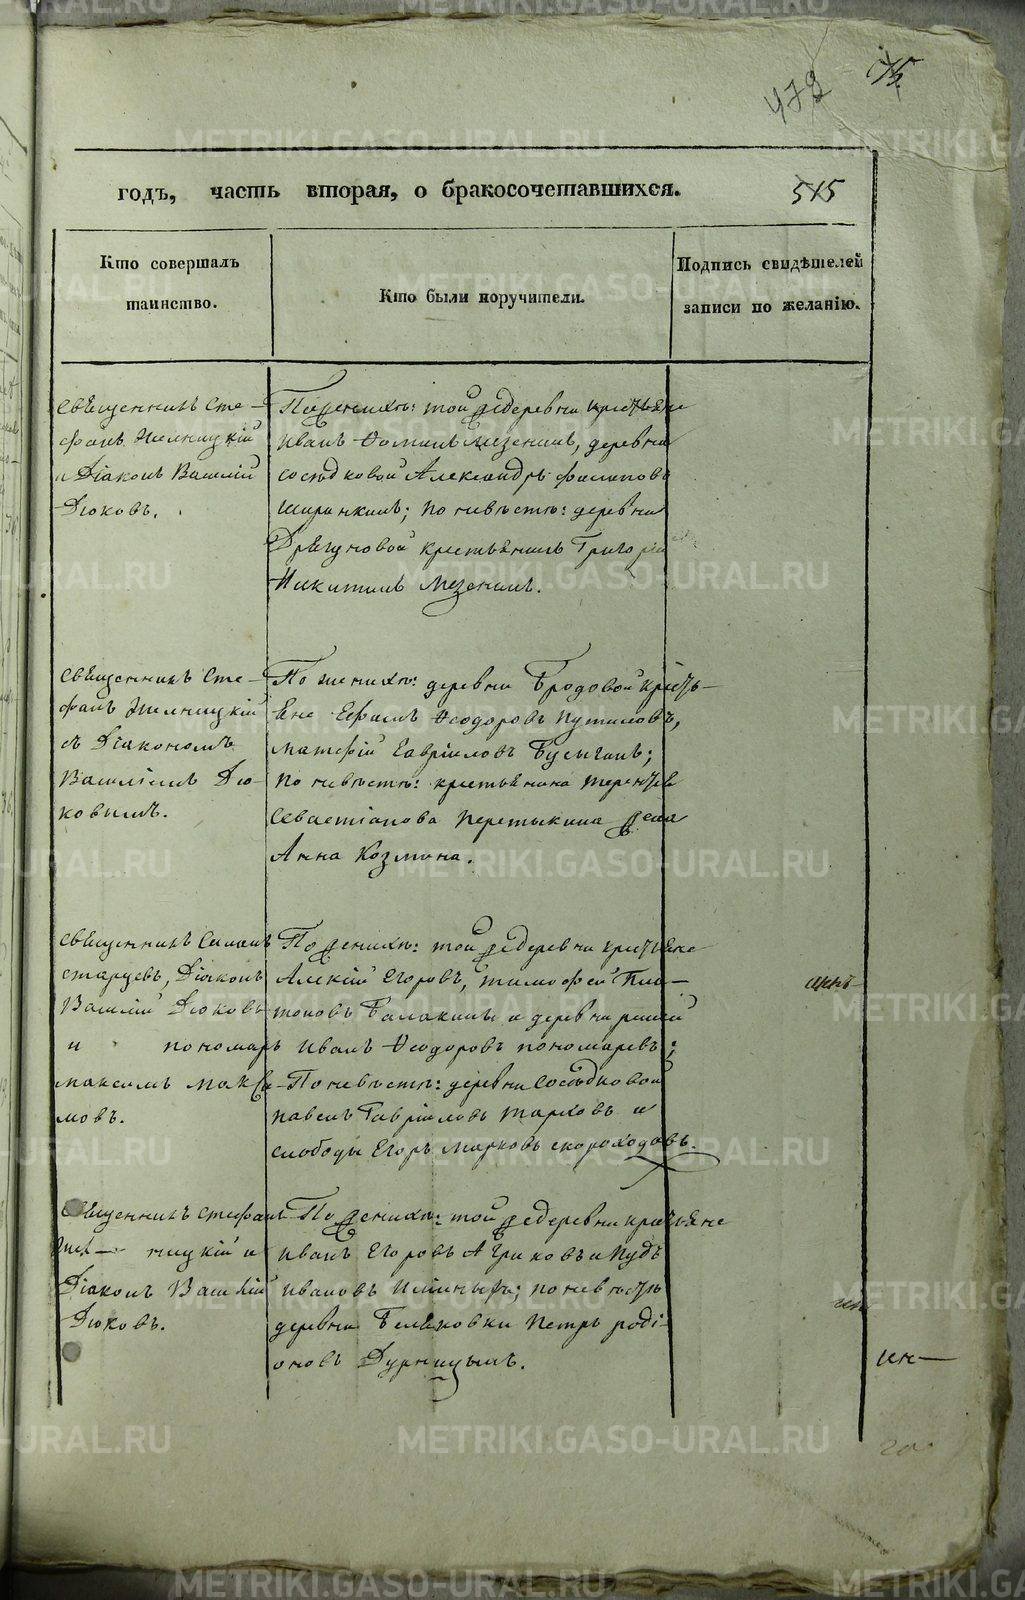 478
515
годъ, часть вторая, о бракосочетавшихся.
Кто совершалъ
таинство.
Кто были поручители.
Подпись свидѣтелей
записи по желанію.
Священникъ Сте-
фанъ
и Діаконъ Василій
Дюковъ.
По женихѣ: той же деревни крестьяне
Иванъ Ѳоминъ Мезенинъ, деревни
Сосѣдковой Александръ Филиповъ
Ширинкинъ; по невѣстѣ: деревни
крестьянинъ Григорій
Никитинъ Мезенинъ.
Священникъ Сте-
фанъ
съ Діакономъ
Василіемъ Дю-
ковымъ.
По женихѣ: деревни Бродовой кресть-
яне Ефимъ Ѳеодоровъ Путиловъ,
Матфій Гавріиловъ Булыгинъ;
по невѣстѣ: крестьянина Терентія
Севастіанова Перетыкина жена
Анна Козмина.
Священникъ Симонъ
Старцевъ, Діаконъ
Василій Дюковъ
и пономарь
Максимъ Макси-
мовъ.
По женихѣ: той же деревни крестьяне
Алексій Егоровъ, Тимофей Пла-
тоновъ Балакины и деревни
Иванъ Ѳеодоровъ Пономаревъ;
По невѣстѣ: деревни Сосѣдковой
Павелъ Гавріиловъ Тарховъ и
слободы Егоръ Марковъ Скороходовъ.
Священникъ Стефанъ
ницкій и
Діаконъ Василій
Дюковъ.
По женихѣ: той же деревни крестьяне
Иванъ Егоровъ и Иудъ
Ивановъ по невѣстѣ
деревни Беляковки Петръ Роді-
оновъ Дурницынъ.